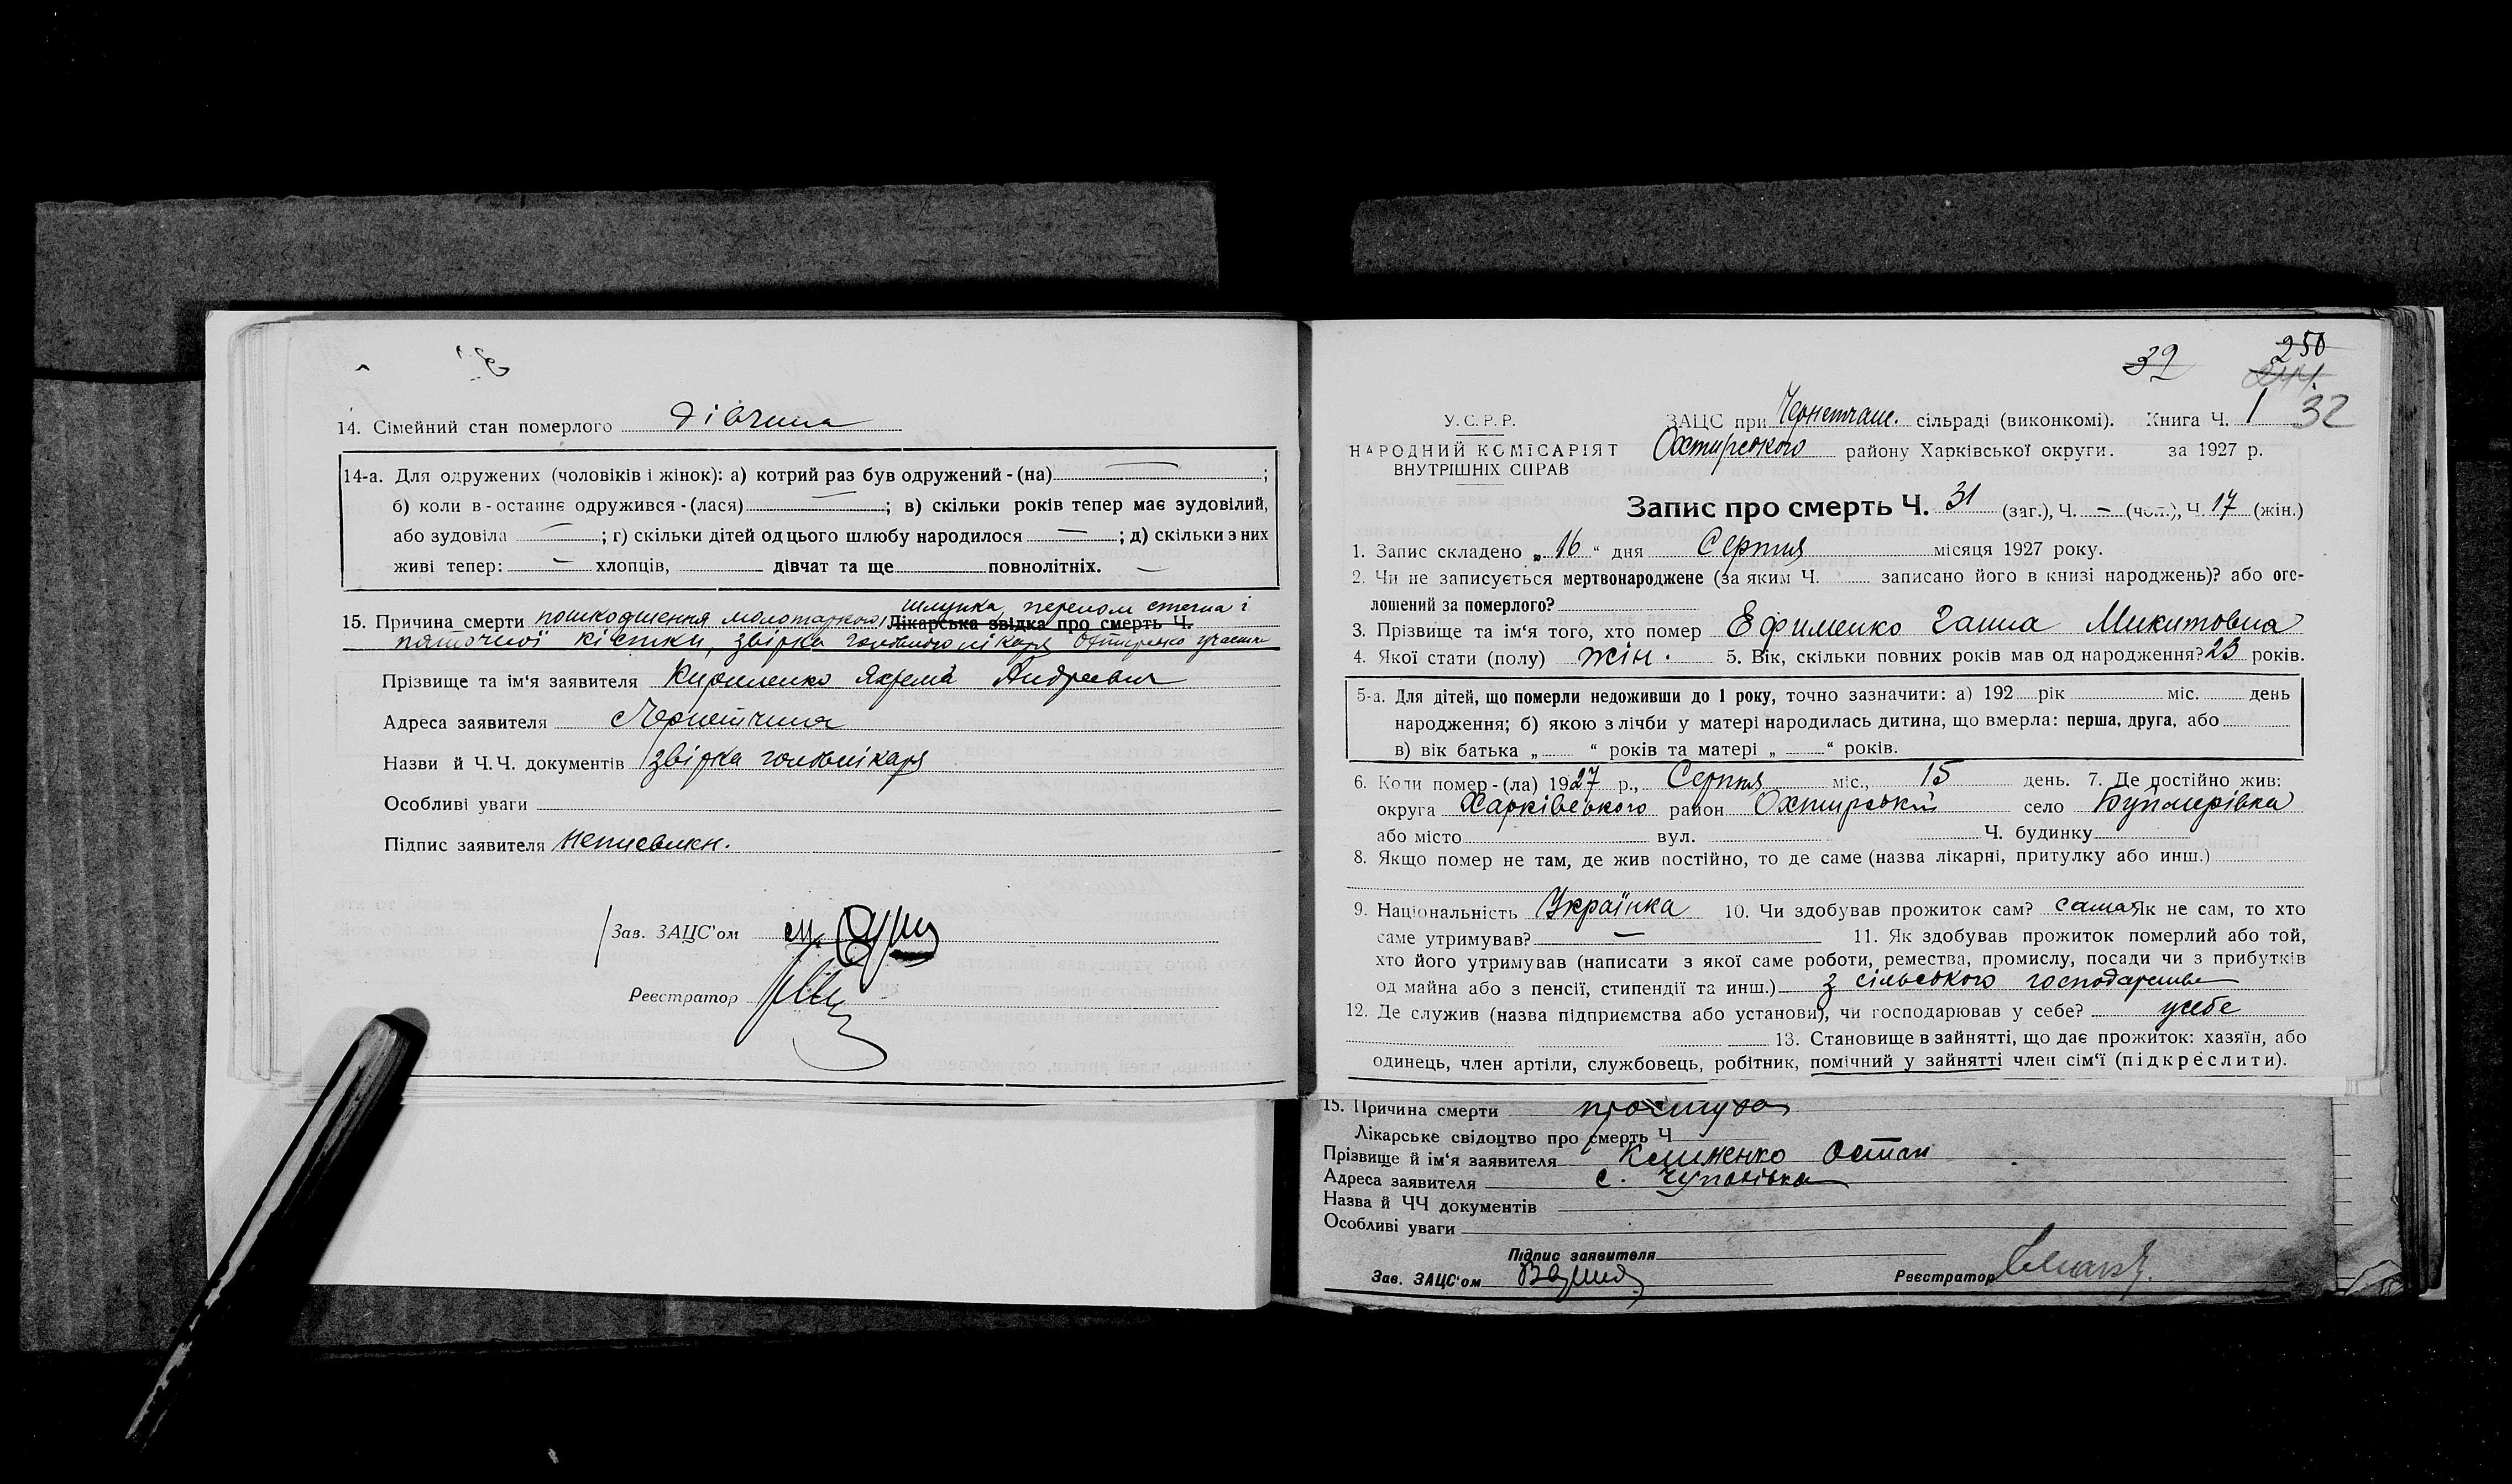 14. Сімейний стан померлого дівчина
14-а. Для одружених (чоловіків і жінок): а) котрий раз був одружений-(на) — ;
б) коли в-останнє одружився-(лася) — ; в) скільки років тепер має зудовілий,
або зудовіла — ; г) скільки дітей од цього шлюбу народилося — ; д) скільки з них
живі тепер: — хлопців, дівчат та ще повнолітніх. —
шлунка, перелом стегна і
15. Причина смерти пошкодження молотаркою Лікарська звідка про смерть Ч.
пяточної кістки, звірка головного лікаря
Прізвище та ім'я заявителя Кириленко Яхрема Андреевич
Адреса заявителя Чернетчина
Назви й Ч.Ч. документів звірка головлікаря
Особливі уваги
Підпис заявителя неписьмен.
Зав. ЗАЦС'ом
Реєстратор
39
250
244
У.С.Р.Р.
НАРОДНИЙ КОМІСАРІЯТ
ВНУТРІШНІХ СПРАВ
ЗАЦС при Чернетчан. сільраді (виконкомі). Книга Ч. 1
32
Охтирського району Харківської округи. за 1927 р.
Запис про смерть Ч. 31 (заг.), Ч. — (чол.), Ч. 17 (жін.)
1. Запис складено „16“ дня Серпня місяця 1927 року.
2. Чи не записується мертвонароджене (за яким Ч. записано його в книзі народжень)? або ого-
лошений за померлого?
3. Прізвище та ім'я того, хто помер Ефименко Ганна Микитовна
4. Якої стати (полу) жін. 5. Вік, скільки повних років мав од народження? 23 років.
5-а. Для дітей, що померли недоживши до 1 року, точно зазначити: а) 192 рік міс. день
народження; б) якою з лічби у матері народилась дитина, що вмерла: перша, друга, або
в) вік батька „ “ років та матері „ “ років.
6. Коли помер-(ла) 1927 р., Серпня міс., 15 день. 7. Де постійно жив:
округа Харківського район Охтирський село Буймерівка
або місто вул. Ч. будинку
8. Якщо помер не там, де жив постійно, то де саме (назва лікарні, притулку або инш.)
9. Національність Українка 10. Чи здобував прожиток сам? сама Як не сам, то хто
саме утримував? — 11. Як здобував прожиток померлий або той,
хто його утримував (написати з якої саме роботи, ремества, промислу, посади чи з прибутків
од майна або з пенсії, стипендії та инш.) з сільського господарства
12. Де служив (назва підприємства або установи), чи господарював у себе? у себе
13. Становище в зайнятті, що дає прожиток: хазяїн, або
одинець, член артіли, службовець, робітник, помічний у зайнятті член сім'ї (підкреслити).
15. Причина смерти простуда
Лікарське свідоцтво про смерть Ч
Прізвище й ім'я заявителя Клименко Остап
Адреса заявителя с. Чупахівка
Назва й ЧЧ документів
Особливі уваги
Підпис заявителя
Зав. ЗАЦС'ом Реєстратор